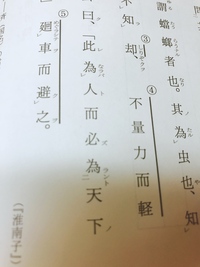 謂蟷螂者也。其為虫也、知
不知却、不量力而軽
③
④
曰、「此為人而必為天下
⑤
廻車而避之。
(『淮南子』)